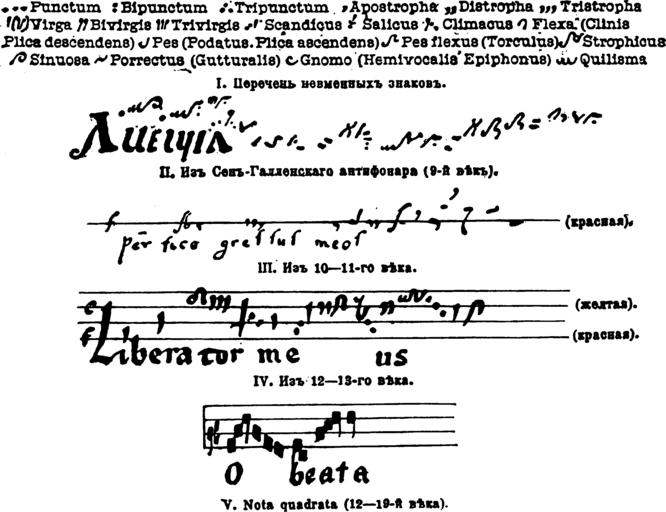 Punctum Bipunctum Tripunctum Apostropha Distropha Tristropha
Virga Bivirgis Trivirgis Scandicus Salicus Climacus Flexa (Clinis
Plica descendens) Pes (Podatus. Plica ascendens) Pes flexus (Torculus) Strophicus
Sinuosa Porrectus (Gutturalis) Gnomo (Hemivocalis Epiphonus) Quilisma
I. Перечень невменныхъ знаковъ.
II. Изъ Сенъ-Галленскаго антифонара (9-й вѣкъ).
(красная).
gressus meos
III. Изъ 10—11-го вѣка.
c
(желтая).
f
(красная).
Liberator me us
IV. Изъ 12—13-го вѣка.
O beata
V. Nota quadrata (12—19-й вѣка).